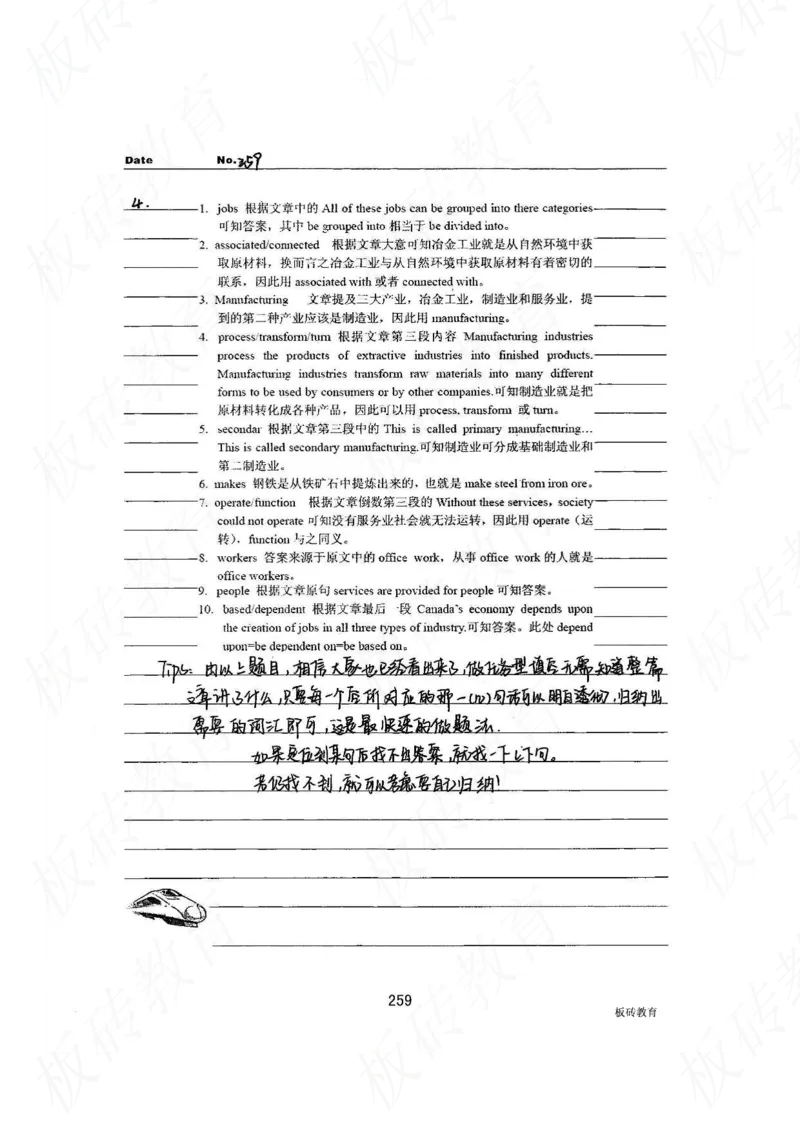 Date No.259
4.
1. jobs 根据文章中的 All of these jobs can be grouped into there categories
可知答案，其中 be grouped into 相当于 be divided into。
2. associated/connected 根据文章大意可知冶金工业就是从自然环境中获
取原材料，换而言之冶金工业与从自然环境中获取原材料有着密切的
联系，因此用 associated with 或者 connected with。
3. Manufacturing 文章提及三大产业，冶金工业，制造业和服务业，提
到的第二种产业应该是制造业，因此用 manufacturing。
4. process/transform/turn 根据文章第三段内容 Manufacturing industries
process the products of extractive industries into finished products.
Manufacturing industries transform raw materials into many different
forms to be used by consumers or by other companies.可知制造业就是把
原材料转化成各种产品，因此可以用 process, transform 或 turn。
5. secondar 根据文章第三段中的 This is called primary manufacturing...
This is called secondary manufacturing.可知制造业可分成基础制造业和
第二制造业。
6. makes 钢铁是从铁矿石中提炼出来的，也就是 make steel from iron ore。
7. operate/function 根据文章倒数第三段的 Without these services，society
could not operate 可知没有服务业社会就无法运转，因此用 operate（运
转），function 与之同义。
8. workers 答案来源于原文中的 office work，从事 office work 的人就是
office workers。
9. people 根据文章原句 services are provided for people 可知答案。
10. based/dependent 根据文章最后一段 Canada's economy depends upon
the creation of jobs in all three types of industry.可知答案。此处 depend
upon=be dependent on=be based on。
Tips：由以上题目，相信大家也已经看出来了，做任务型读后无需知道整篇
文章讲了什么，只要每一个空所对应的那一(两)句话可以明白透彻，归纳出
需要的词汇即可，这是最快速的做题法.
如果定位到某句后找不出答案，就找一下上下句。
若仍找不到，就可以考虑要自己归纳！
259
板砖教育
板砖教育